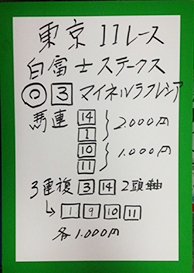 東京11レース
白富士ステークス
◎ 3 マイネルラフレシア
馬連 14
1 2.000円
10 1.000円
11
3連複 3 14 2頭軸
↳ 1 9 10 11
各1.000円